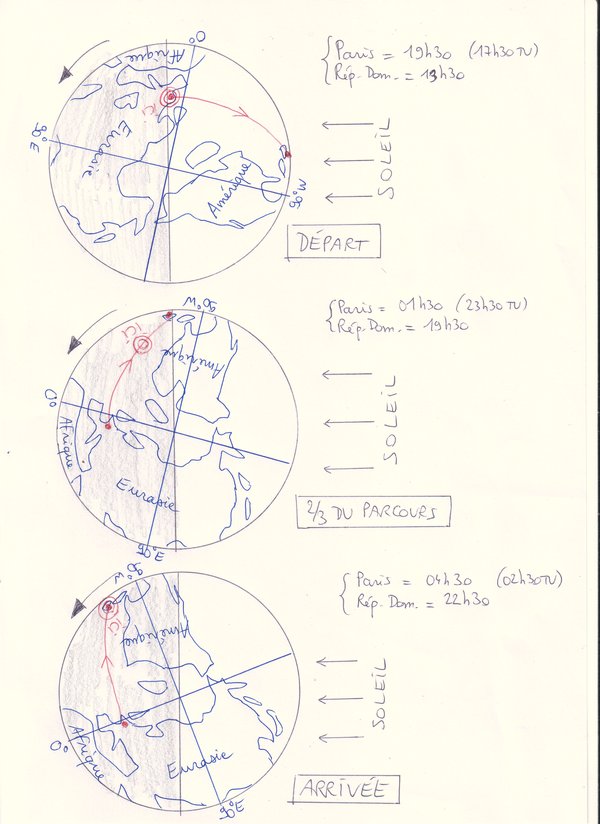 0°
Afrique
90°E
ici
Eurasie
Amérique
90°W
Paris = 19h30 (17h30TU)
Rép. Dom. = 13h30
SOLEIL
DÉPART
90°W
ici
Amérique
0°
Afrique
Eurasie
90°E
Paris = 01h30 (23h30TU)
Rép. Dom. = 19h30
SOLEIL
2/3 DU PARCOURS
90°W
ici
Amérique
0°
Afrique
Eurasie
90°E
Paris = 04h30 (02h30TU)
Rép. Dom. = 22h30
SOLEIL
ARRIVÉE